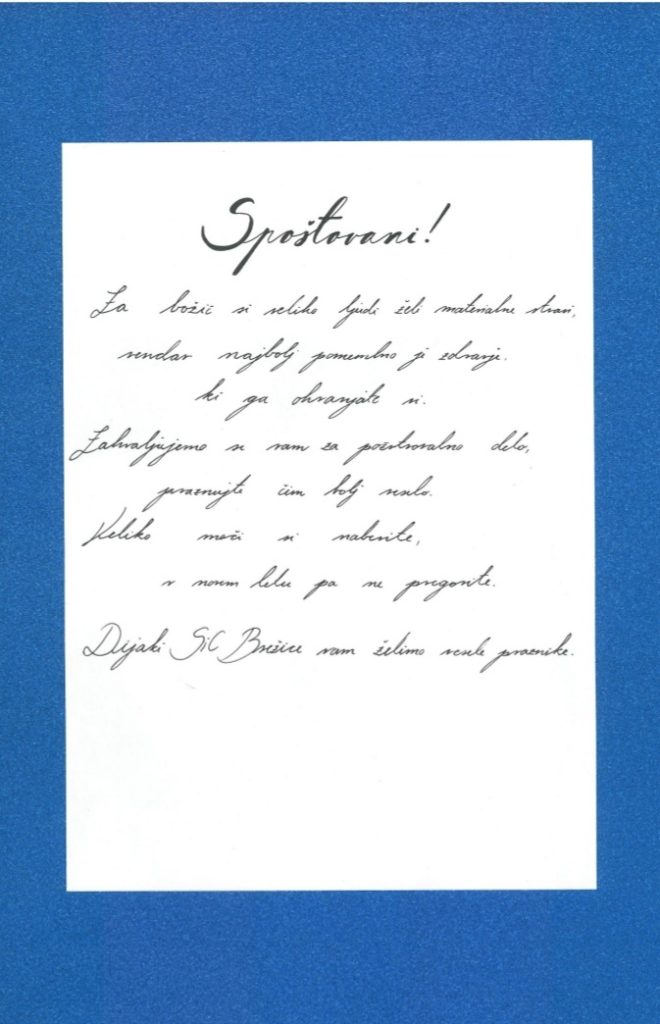 Spoštovani!
Za božič si veliko ljudi želi materialne stvari,
vendar najbolj pomembno je zdravje.
ki ga ohranjate vi.
Zahvaljujemo se vam za požrtvovalno delo,
praznujte čim bolj veselo.
Veliko moči si naberite,
v novem letu pa ne pregorite.
Dijaki SiC Brežice vam želimo vesele praznike.